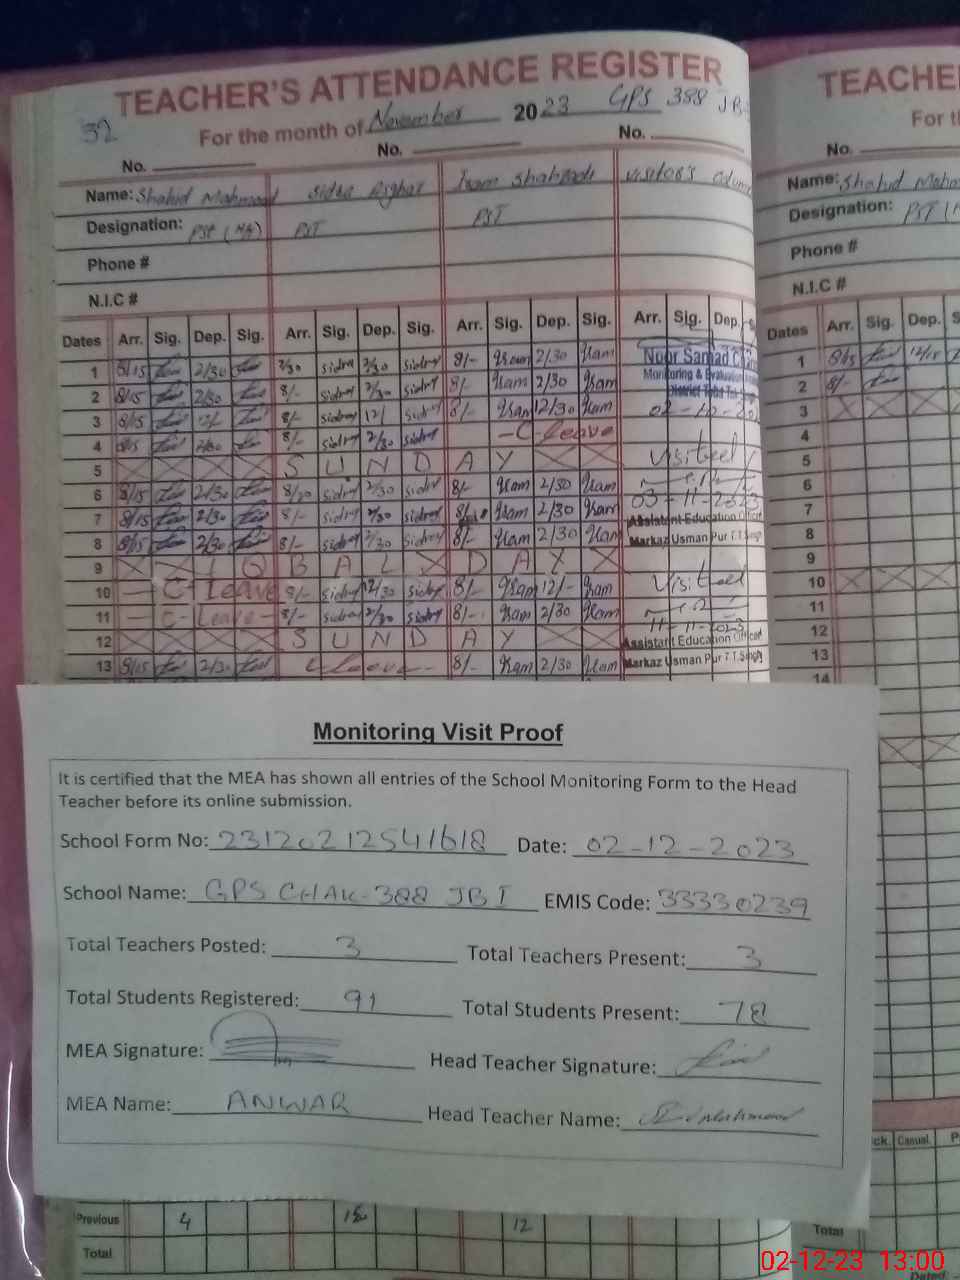 TEACHER'S ATTENDANCE REGISTER
32
For the month of November 2023 GPS 388 JB
No. No. No.
Name: Shahid Mahmood Sidra Asghar Iram Shahzadi Visitor's Column
Designation: PST (H/T) PST PST
Phone #
N.I.C #
Dates Arr. Sig. Dep. Sig. Arr. Sig. Dep. Sig. Arr. Sig. Dep. Sig. Arr. Sig. Dep.
1 8/15 2/30 7/30 sidra 2/30 sidra 8/- Iram 2/30 Iram Noor Samad
2 8/15 2/30 8/- sidra 2/30 sidra 8/- Iram 2/30 Iram Monitoring & Evaluation
3 8/15 12/ 8/- sidra 12/ sidra 8/- Iram 12/30 Iram 02-12-20
4 8/15 2/30 8/- sidra 2/30 sidra -C-leave
5 SUNDAY Visited
6 8/15 2/30 8/20 sidra 2/30 sidra 8/- Iram 2/30 Iram 03-11-2023
7 8/15 2/30 8/- sidra 2/30 sidra 8/- Iram 2/30 Iram Assistant Education Officer
8 8/15 2/30 8/- sidra 2/30 sidra 8/- Iram 2/30 Iram Markaz Usman Pur T.T.Singh
9 IQBAL DAY
10 - C-Leave 8/- sidra 12/30 sidra 8/- Iram 12/- Iram Visited
11 - C-Leave- 8/- sidra 2/30 sidra 8/- Iram 2/30 Iram 11-11-2023
12 SUNDAY Assistant Education Officer
13 8/15 2/30 C leave- 8/- Iram 2/30 Iram Markaz Usman Pur T.T.Singh
Monitoring Visit Proof
It is certified that the MEA has shown all entries of the School Monitoring Form to the Head
Teacher before its online submission.
School Form No: 23120212541618 Date: 02-12-2023
School Name: GPS CHAK-388 JB I EMIS Code: 33330239
Total Teachers Posted: 3 Total Teachers Present: 3
Total Students Registered: 91 Total Students Present: 78
MEA Signature: Head Teacher Signature:
MEA Name: ANWAR Head Teacher Name:
Previous 4 12
Total
TEACHE
For th
No.
Name: Shahid Mahm
Designation: PST (
Phone #
N.I.C #
Dates Arr. Sig. Dep. S
1 8/15 12/15
2 8/-
3
4
5
6
7
8
9
10
11
12
13
14
ck. Casual. P
Total
Dated
02-12-23 13:00